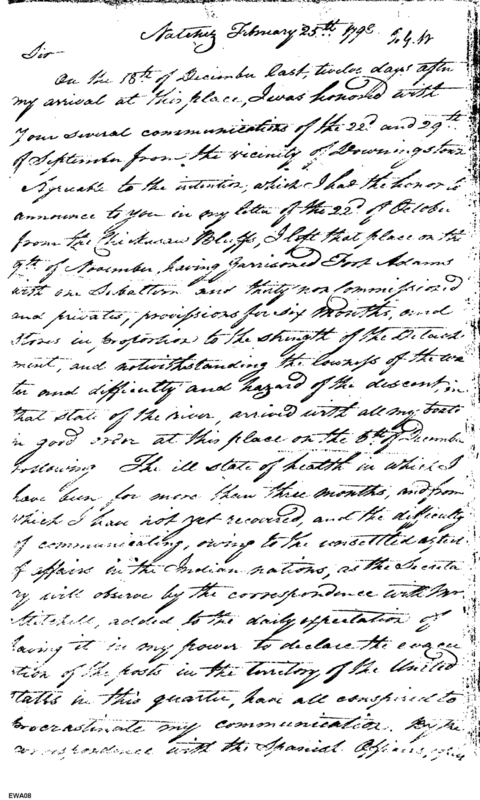 Natchez February 25th 1798.
Sir
On the 18th of December last, twelve days after
my arrival at this place, I was honored with
your several communications of the 22d. and 29th
of September from the vicinity of Downingstown
Agreable to the intention, which I had the honor to
announce to you in my letter of the 22d. of October
from the Chickasaw Bluffs, I left that place on the
9th of November, having garrisoned Fort Adams
with one Subaltern and thirty non commissioned
and privates, provissions for six months, and
stores in proportion to the strength of the Detach
ment, and notwithstanding the lowness of the wa
ter and difficulty and hazard of the descent in
that state of the river, arrived with all my boats
in good order at this place on the 6th of December
following. The ill state of health in which I
have been for more than three months, and from
which I have not yet recovered, and the difficulty
of communicating, owing to the unsettled aspect
of affairs in the Indian nations, as the Secreta
ry will observe by the correspondence with Mr.
Mitchell, added to the daily expectation of
having it in my power to declare the evacu
ation of the posts in the territory of the United
States in this quarter, have all conspired to
procrastinate my communication. By the
correspondence with the Spanish Officers,
EWA08